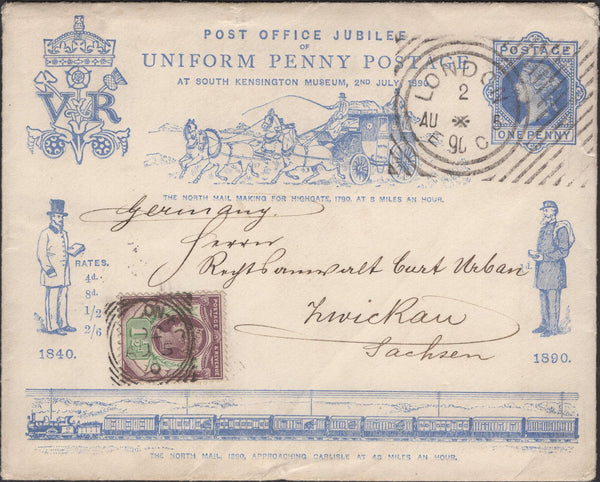 POST OFFICE JUBILEE
OF
UNIFORM PENNY POSTAGE
AT SOUTH KENSINGTON MUSEUM, 2ND JULY, 1890.
VR
POSTAGE
ONE PENNY
LONDON
2
AU 5
90
E C
THE NORTH MAIL MAKING FOR HIGHGATE, 1790, AT 8 MILES AN HOUR.
Germany.
Herrn
Rechtsanwalt Curt Urban
Zwickau
Sachsen
RATES.
4d.
8d.
1/2
2/6
1840.
POSTAGE
& REVENUE
1890.
THE NORTH MAIL, 1890, APPROACHING CARLISLE AT 48 MILES AN HOUR.